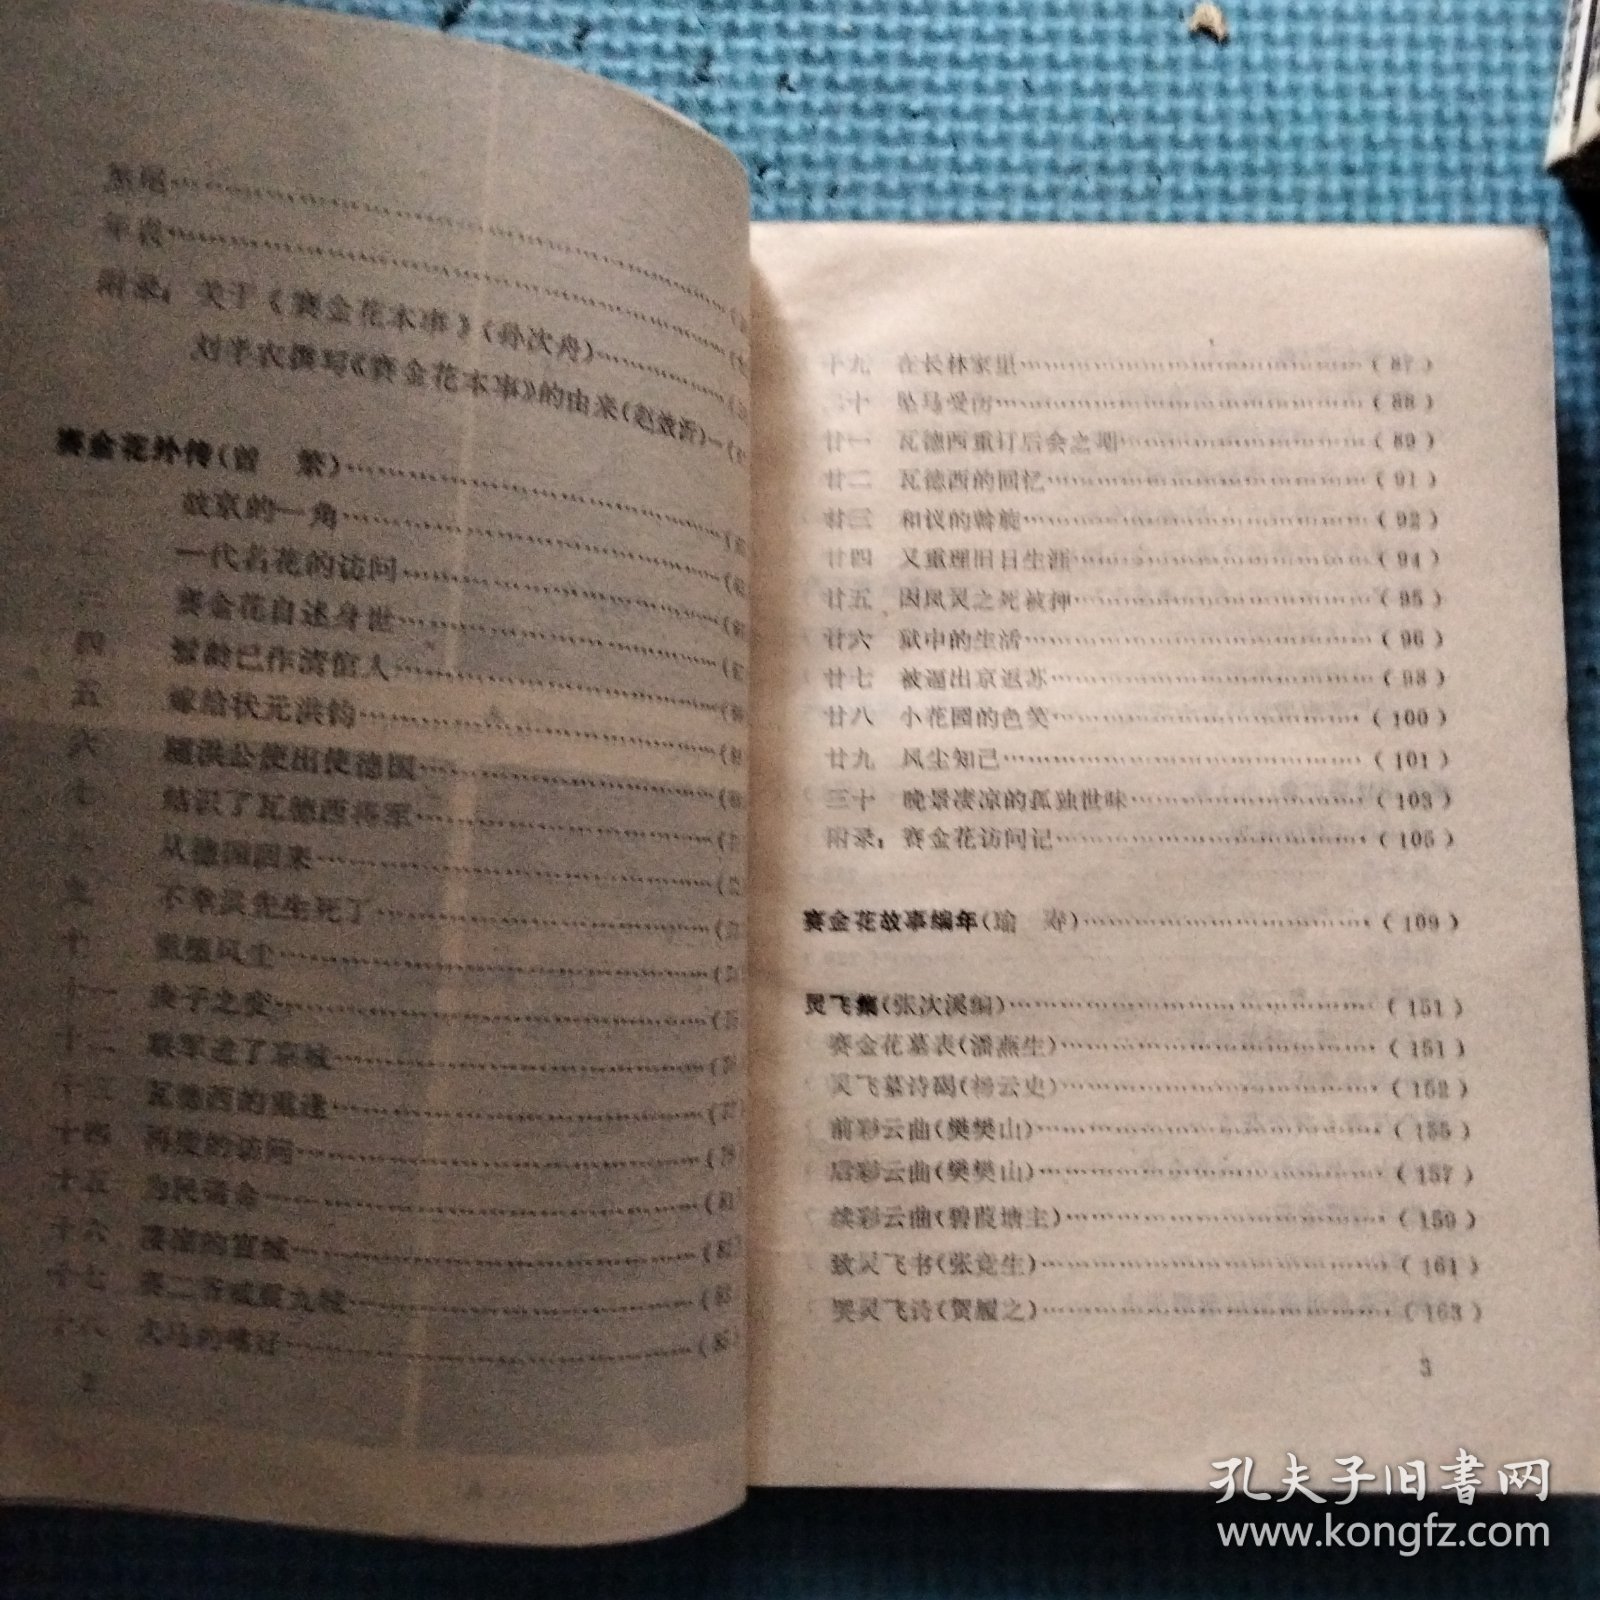 年表
附录：关于《赛金花本事》（孙次舟）
刘半农撰写《赛金花本事》的由来（赵效沂）
赛金花外传（曾　繁）
故京的一角
一代名花的访问
赛金花自述身世
四
五　嫁给状元洪钧
六　随洪公使出使德国
七　结识了瓦德西将军
从德国回来
九
十　重堕风尘
十一　庚子之变
十二　联军进了京城
十三　瓦德西的重逢
十四　再度的访问
十五　为民请命
十六
十七
十八
2
十九　在长林家里（87）
二十　坠马受伤（88）
廿一　瓦德西重订后会之期（89）
廿二　瓦德西的回忆（91）
廿三　和议的斡旋（92）
廿四　又重理旧日生涯（94）
廿五　因凤灵之死被押（95）
廿六　狱中的生活（96）
廿七　被逼出京返苏（98）
廿八　小花园的色笑（100）
廿九　风尘知己（101）
三十　晚景凄凉的孤独世味（103）
附录：赛金花访问记（105）
赛金花故事编年（瑜　寿）（109）
灵飞集（张次溪编）（151）
赛金花墓表（潘燕生）（151）
灵飞墓诗碣（杨云史）（152）
前彩云曲（樊樊山）（155）
后彩云曲（樊樊山）（157）
续彩云曲（碧葭塘主）（159）
致灵飞书（张竞生）（161）
哭灵飞诗（贺履之）（163）
3
孔夫子旧书网
www.kongfz.com